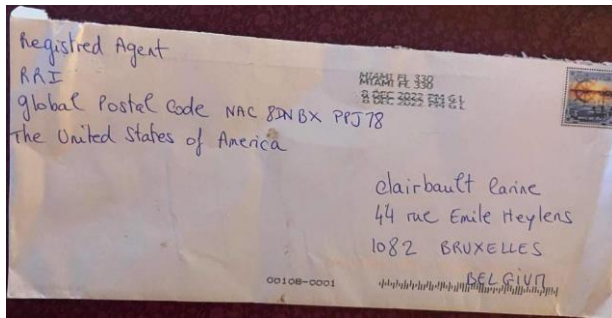 Registred Agent
RRI
global Postal Code NAC 8DNBX PPJ78
The United States of America
MIAMI FL 330
MIAMI FL 330
8 DEC 2022 PM 6 L
8 DEC 2022 PM 6 L
Clairbault Carine
44 rue Emile Heylens
1082 BRUXELLES
BELGIUM
00108-0001